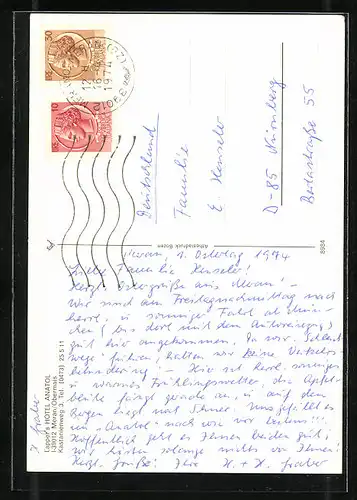 50
10
39012 MERANO (BZ)
12
16-4
1974
Deutschland
Familie
E. Henseler
D-85 Nürnberg
Bodastraße 55
Athesiadruck Bozen
8984
Meran, 1. Ostertag 1974
Liebe Familie Henseler!
Herzl. Ostergrüße aus Meran! –
Wir sind am Freitagnachmittag nach
herrl. u. sonniger Fahrt ab Mün-
chen (bis dort mit dem Autoreisezug)
gut hier angekommen. Da wir
wege" fuhren, hatten wir keine Verkehrs-
behinderung! – Hier ist herrl. sonniges
u. warmes Frühlingswetter, die Apfel-
blüte fängt gerade an, u. auf den
Bergen liegt viel Schnee. Uns gefällt es
im „Anatol" nach wie vor bestens!!!
Hoffentlich geht es Ihnen beiden gut;
wir hörten solange nichts von Ihnen!
Herzl. Grüße! Ihre H. + H. Graber
Tappert's HOTEL ANATOL
I-39012 Meran/Obermais
Kastanienweg 3, Tel. (0473) 25 5 11
H. Graber